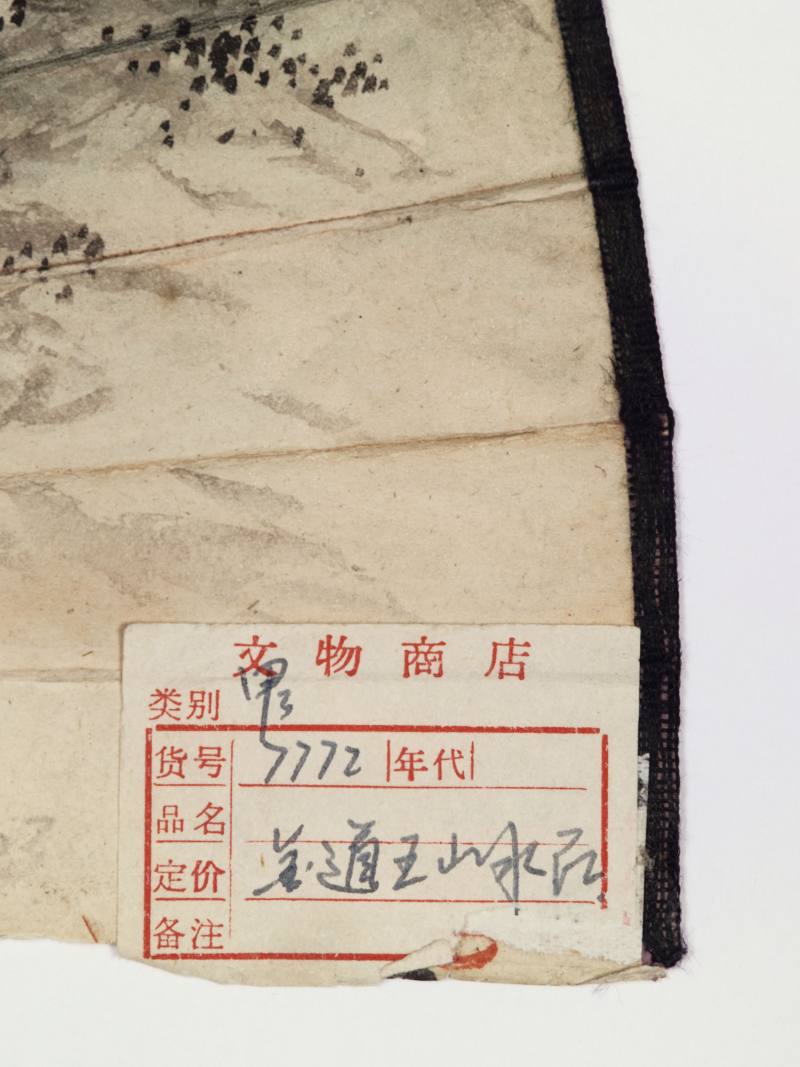 文物商店
类别
货号 7772 年代
品名
定价 姜道王山水
备注